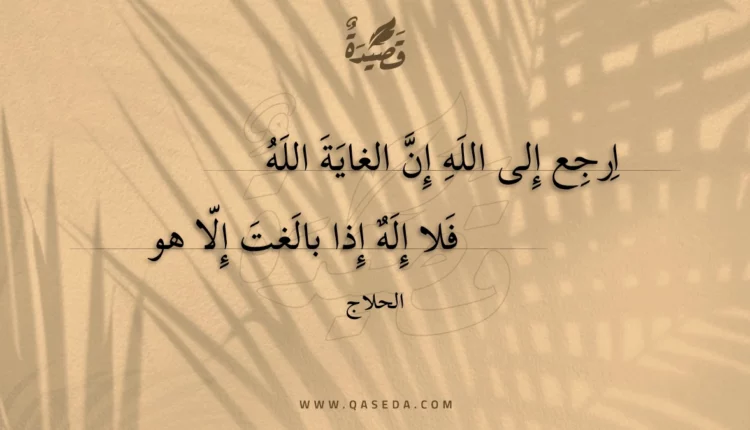 قَصِيْدَةٌ
اِرجِع إِلى اللَهِ إِنَّ الغايَةَ اللَهُ
فَلا إِلَهٌ إِذا بالَغتَ إِلّا هو
الحلاج
WWW.QASEDA.COM